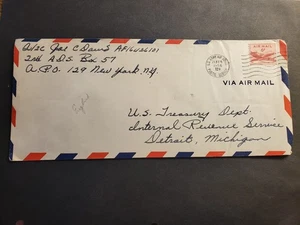 A/2C Joe C Davis AF16402101
2nd A.D.S. Box 57
A.P.O. 129 New York, N.Y.
VIA AIR MAIL
U.S. Treasury Dept.
Internal Revenue Service
Detroit, Michigan